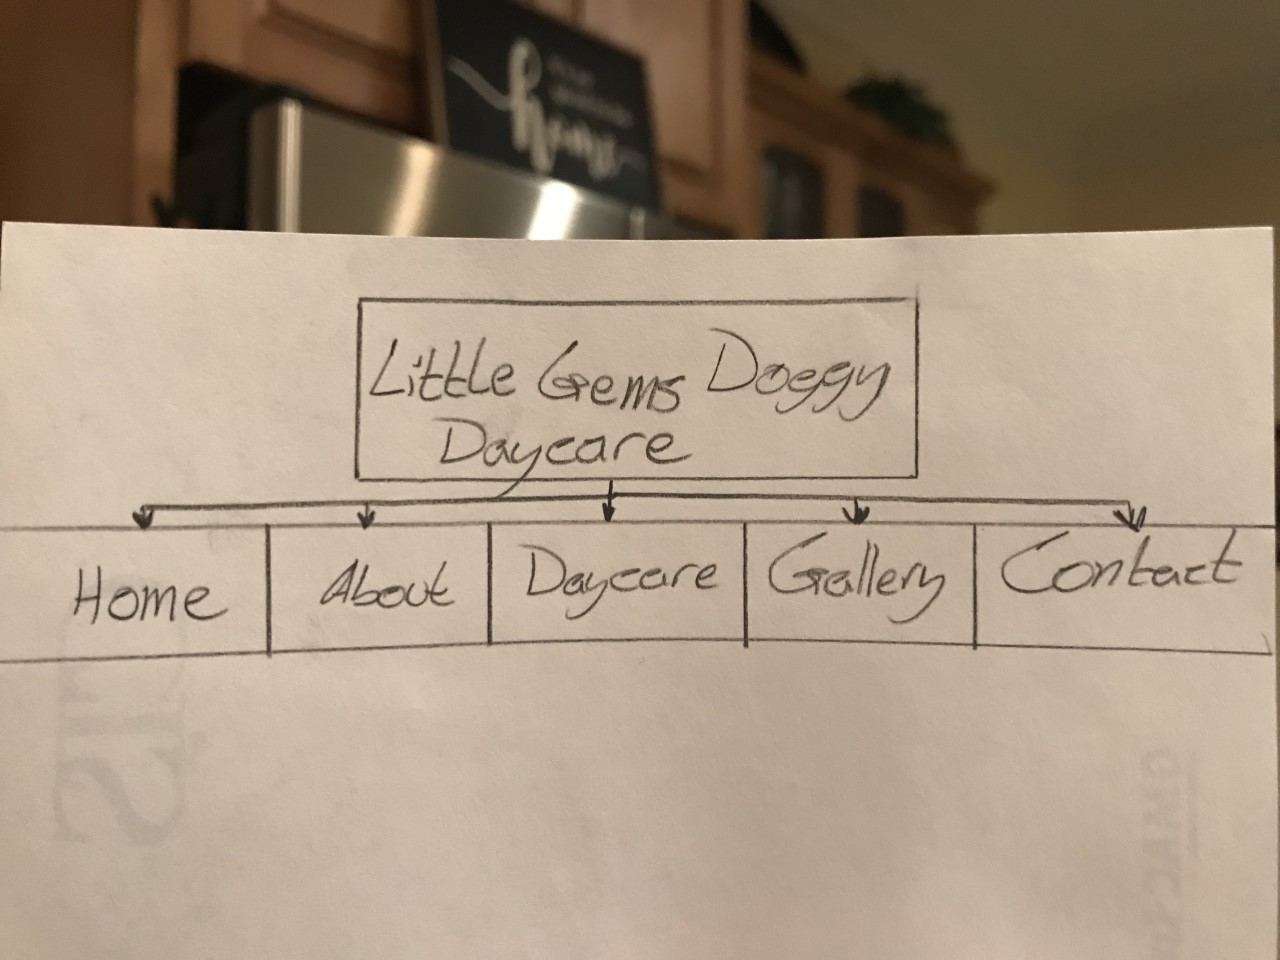 home
Little Gems Doggy
Daycare
Home
About
Daycare
Gallery
Contact